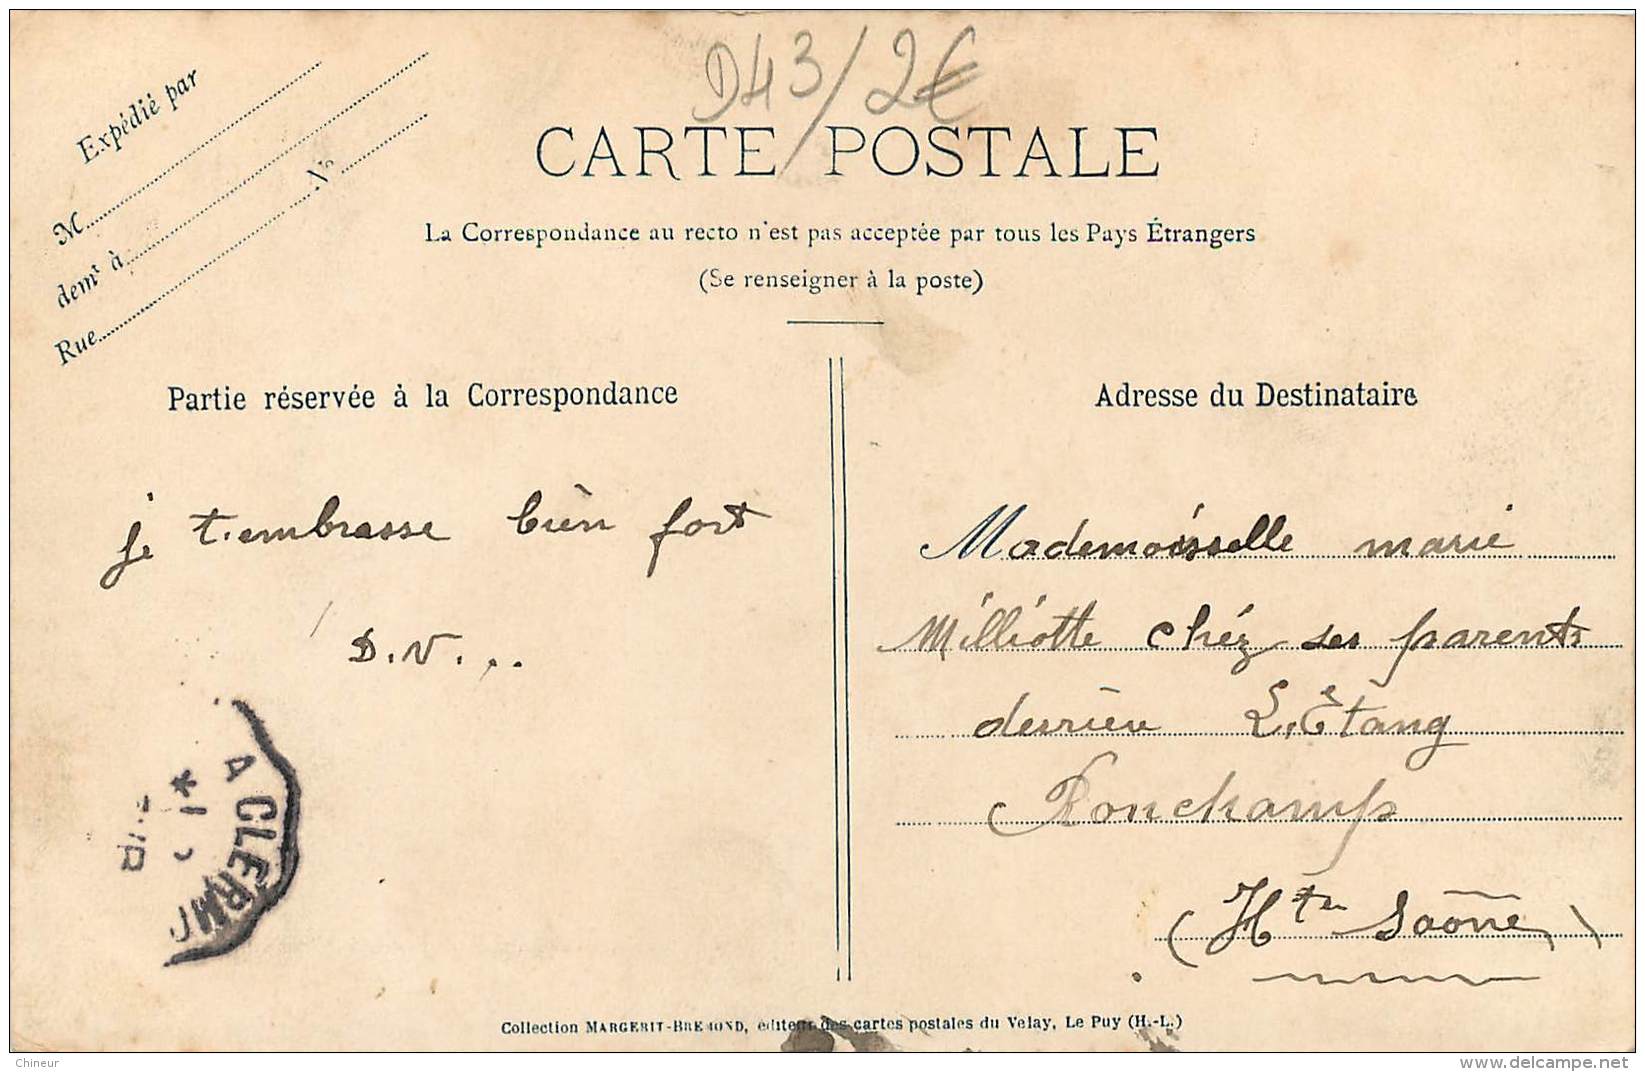 D43/2€
Expédié par
M
demt à
Rue Nº
CARTE POSTALE
La Correspondance au recto n'est pas acceptée par tous les Pays Étrangers
(Se renseigner à la poste)
Partie réservée à la Correspondance
je t'embrasse bien fort
D.V...
A CLERM
Adresse du Destinataire
Mademoisselle marie
Milliotte chéz ses parents
derrière L'Étang
Ronchamp
(Hte Saône)
Collection MARGERIT-BREMOND, éditeur des cartes postales du Velay, Le Puy (H.-L.)
Chineur
www.delcampe.net